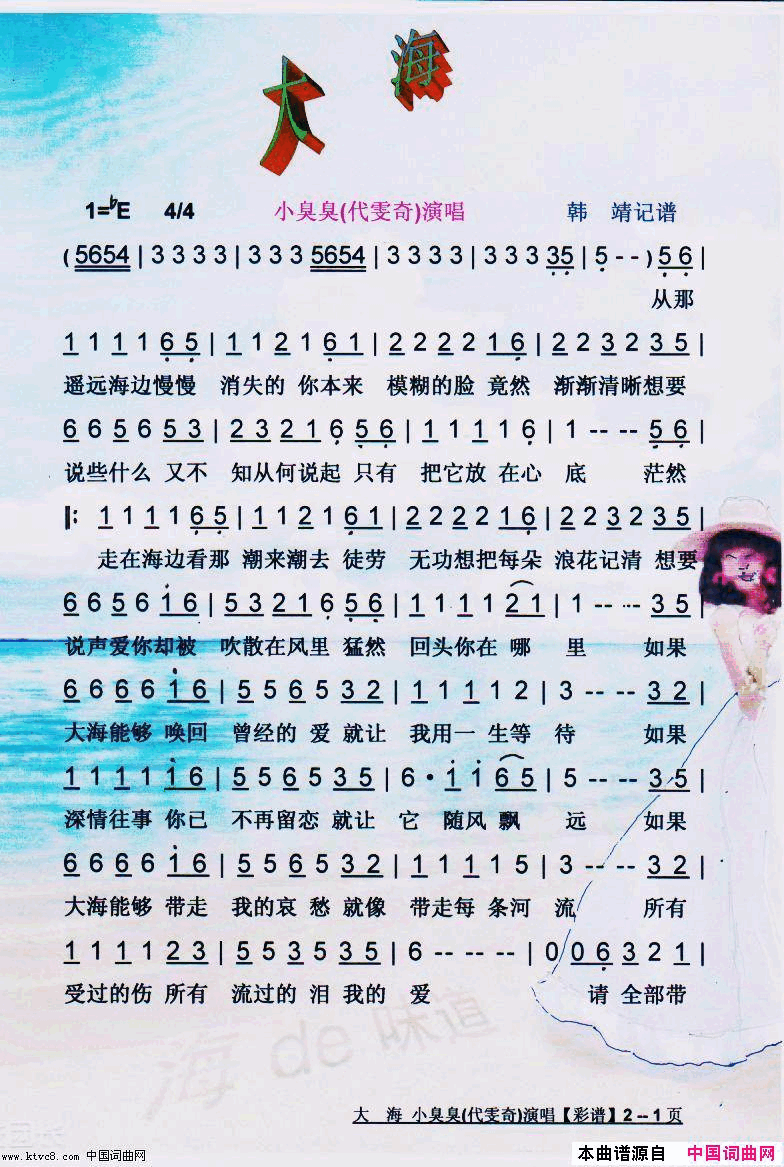 大 海
1=♭E 4/4 小臭臭(代雯奇)演唱 韩 靖记谱
( 5654 | 3 3 3 3 | 3 3 3 5654 | 3 3 3 3 | 3 3 3 35 | 5 - - ) 5 6 |
从那
1 1 1 1 6 5 | 1 1 2 1 6 1 | 2 2 2 2 1 6 | 2 2 3 2 3 5 |
遥远海边慢慢 消失的 你本来 模糊的脸 竟然 渐渐清晰想要
6 6 5 6 5 3 | 2 3 2 1 6 5 6 | 1 1 1 1 6 | 1 -- -- 5 6 |
说些什么 又不 知从何说起 只有 把它放 在心 底 茫然
‖: 1 1 1 1 6 5 | 1 1 2 1 6 1 | 2 2 2 2 1 6 | 2 2 3 2 3 5 |
走在海边看那 潮来潮去 徒劳 无功想把每朵 浪花记清 想要
6 6 5 6 1 6 | 5 3 2 1 6 5 6 | 1 1 1 1 2 1 | 1 -- -- 3 5 |
说声爱你却被 吹散在风里 猛然 回头你在 哪 里 如果
6 6 6 6 1 6 | 5 5 6 5 3 2 | 1 1 1 1 2 | 3 -- -- 3 5 |
大海能够 唤回 曾经的 爱 就让 我用一 生等 待 如果
1 1 1 1 1 6 | 5 5 6 5 3 5 | 6 · 1 1 6 5 | 5 -- -- 3 5 |
深情往事 你已 不再留恋 就让 它 随风 飘 远 如果
6 6 6 6 1 6 | 5 5 6 5 3 2 | 1 1 1 1 5 | 3 -- -- 3 2 |
大海能够 带走 我的哀 愁 就像 带走每 条河 流 所有
1 1 1 1 2 3 | 5 5 3 5 3 5 | 6 -- -- -- | 0 0 6 3 2 1 |
受过的伤 所有 流过的 泪 我的 爱 请 全部带
海 de 味道
大 海 小臭臭(代雯奇)演唱【彩谱】2 -- 1 页
www.ktvc8.com 中国词曲网
本曲谱源自 中国词曲网